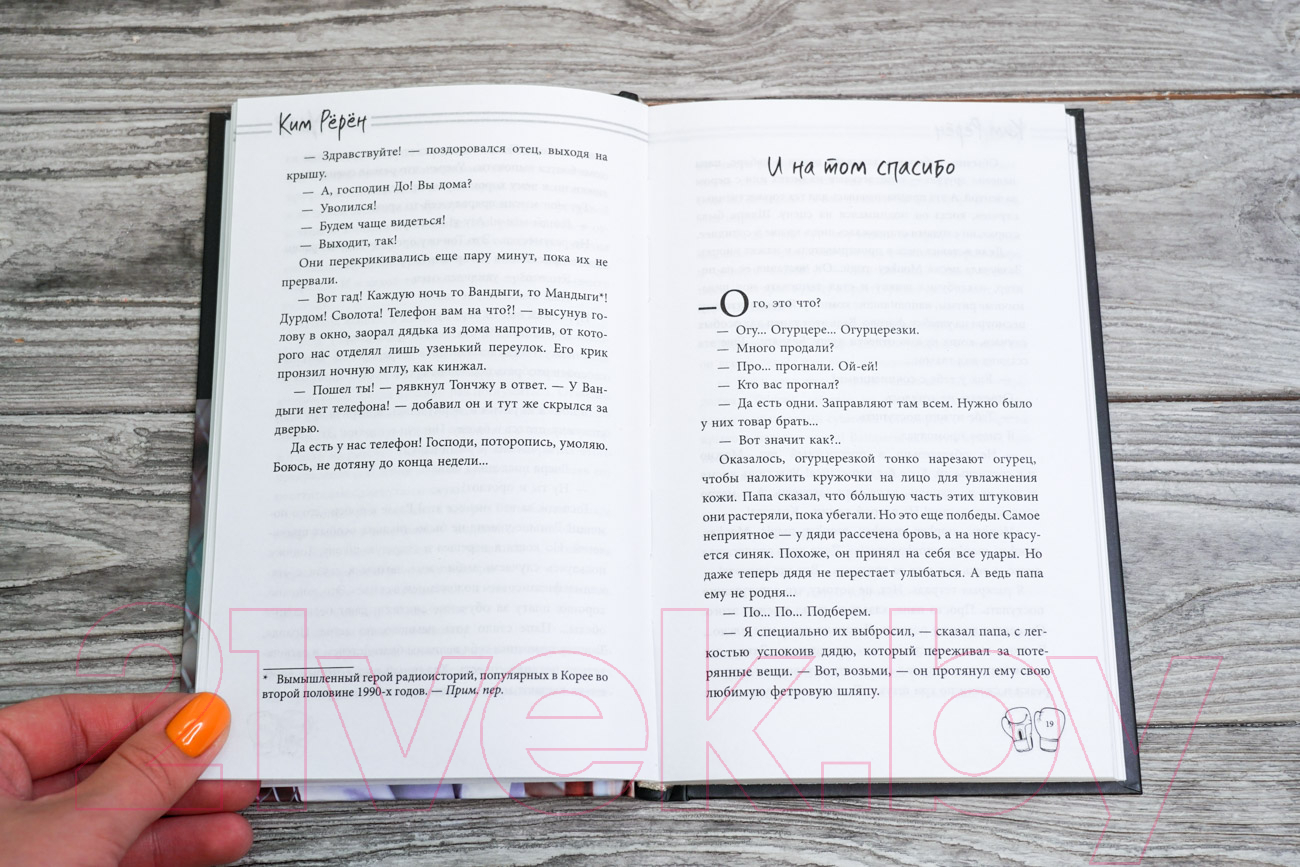 Ким Рёрён
— Здравствуйте! — поздоровался отец, выходя на
крышу.
— А, господин До! Вы дома?
— Уволился!
— Будем чаще видеться!
— Выходит, так!
Они перекрикивались еще пару минут, пока их не
прервали.
— Вот гад! Каждую ночь то Вандыги, то Мандыги*!
Дурдом! Сволота! Телефон вам на что?! — высунув го-
лову в окно, заорал дядька из дома напротив, от кото-
рого нас отделял лишь узенький переулок. Его крик
пронзил ночную мглу, как кинжал.
— Пошел ты! — рявкнул Тончжу в ответ. — У Ван-
дыги нет телефона! — добавил он и тут же скрылся за
дверью.
Да есть у нас телефон! Господи, поторопись, умоляю.
Боюсь, не дотяну до конца недели...
* Вымышленный герой радиоисторий, популярных в Корее во
второй половине 1990-х годов. — Прим. пер.
И на том спасибо
—Ого, это что?
— Огу... Огурцере... Огурцерезки.
— Много продали?
— Про... прогнали. Ой-ей!
— Кто вас прогнал?
— Да есть одни. Заправляют там всем. Нужно было
у них товар брать...
— Вот значит как?..
Оказалось, огурцерезкой тонко нарезают огурец,
чтобы наложить кружочки на лицо для увлажнения
кожи. Папа сказал, что бо́льшую часть этих штуковин
они растеряли, пока убегали. Но это еще полбеды. Самое
неприятное — у дяди рассечена бровь, а на ноге красу-
ется синяк. Похоже, он принял на себя все удары. Но
даже теперь дядя не перестает улыбаться. А ведь папа
ему не родня...
— По... По... Подберем.
— Я специально их выбросил, — сказал папа, с лег-
костью успокоив дядю, который переживал за поте-
рянные вещи. — Вот, возьми, — он протянул ему свою
любимую фетровую шляпу.
19
21vek.by